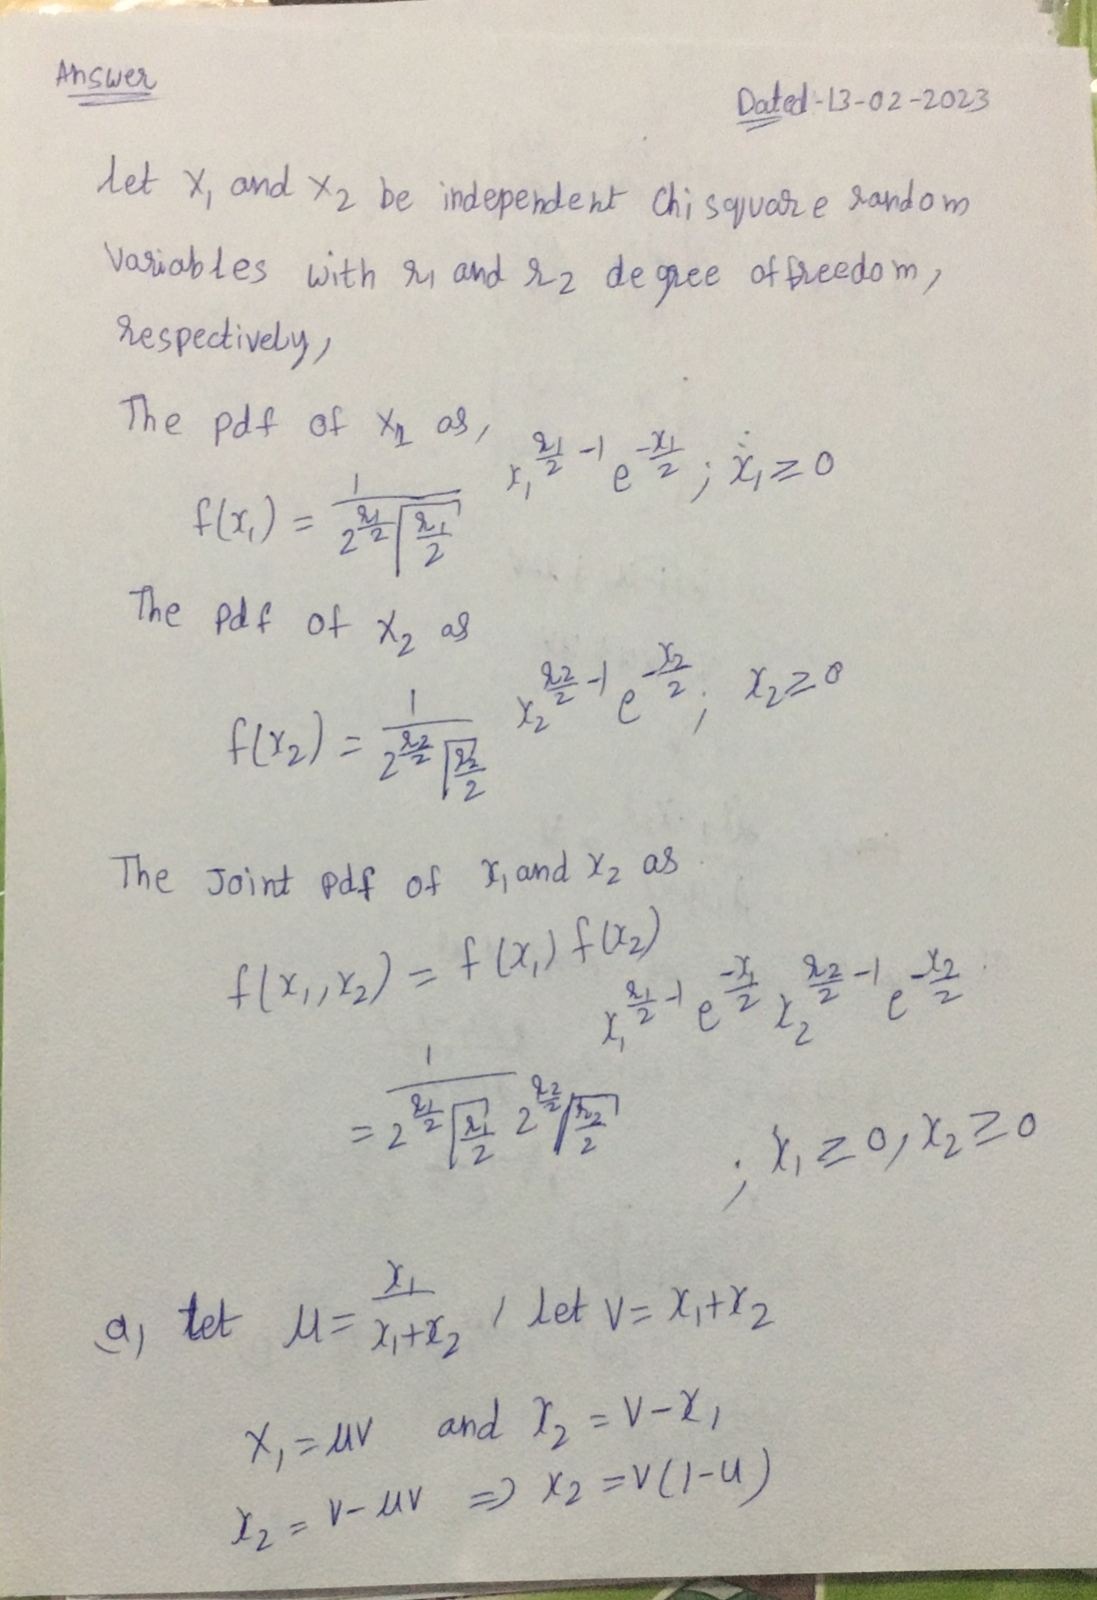 Answer
Dated:-13-02-2023
Let X₁ and X₂ be independent Chi square random
Variables with r₁ and r₂ degree of freedom,
respectively,
The pdf of X₁ as,
f(x₁) = 1/(2^(r₁/2) Γ(r₁/2)) x₁^(r₁/2 -1) e^(-x₁/2) ; x₁ ≥ 0
The Pdf of X₂ as
f(x₂) = 1/(2^(r₂/2) Γ(r₂/2)) x₂^(r₂/2 -1) e^(-x₂/2) ; x₂ ≥ 0
The Joint pdf of X₁ and X₂ as
f(x₁, x₂) = f(x₁) f(x₂)
= 1/(2^(r₁/2) Γ(r₁/2) 2^(r₂/2) Γ(r₂/2)) x₁^(r₁/2 -1) e^(-x₁/2) x₂^(r₂/2 -1) e^(-x₂/2)
; x₁ ≥ 0, x₂ ≥ 0
a, Let u = x₁/(x₁+x₂) , Let v = x₁+x₂
x₁ = uv and x₂ = v-x₁
x₂ = v-uv ⇒ x₂ = v(1-u)